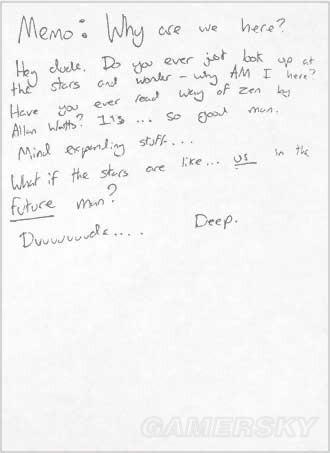 Memo: Why are we here?
Hey dude. Do you ever just look up at
the stars and wonder - why AM I here?
Have you ever read way of zen by
Allan Watts? It's... so good man.
Mind expanding stuff...
What if the stars are like... us in the
future man?
Duuuuuuude....
Deep.
GAMERSKY